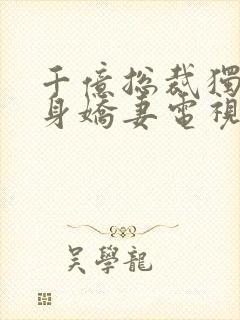 千億總裁獨
身嬌妻電視
吳學龍